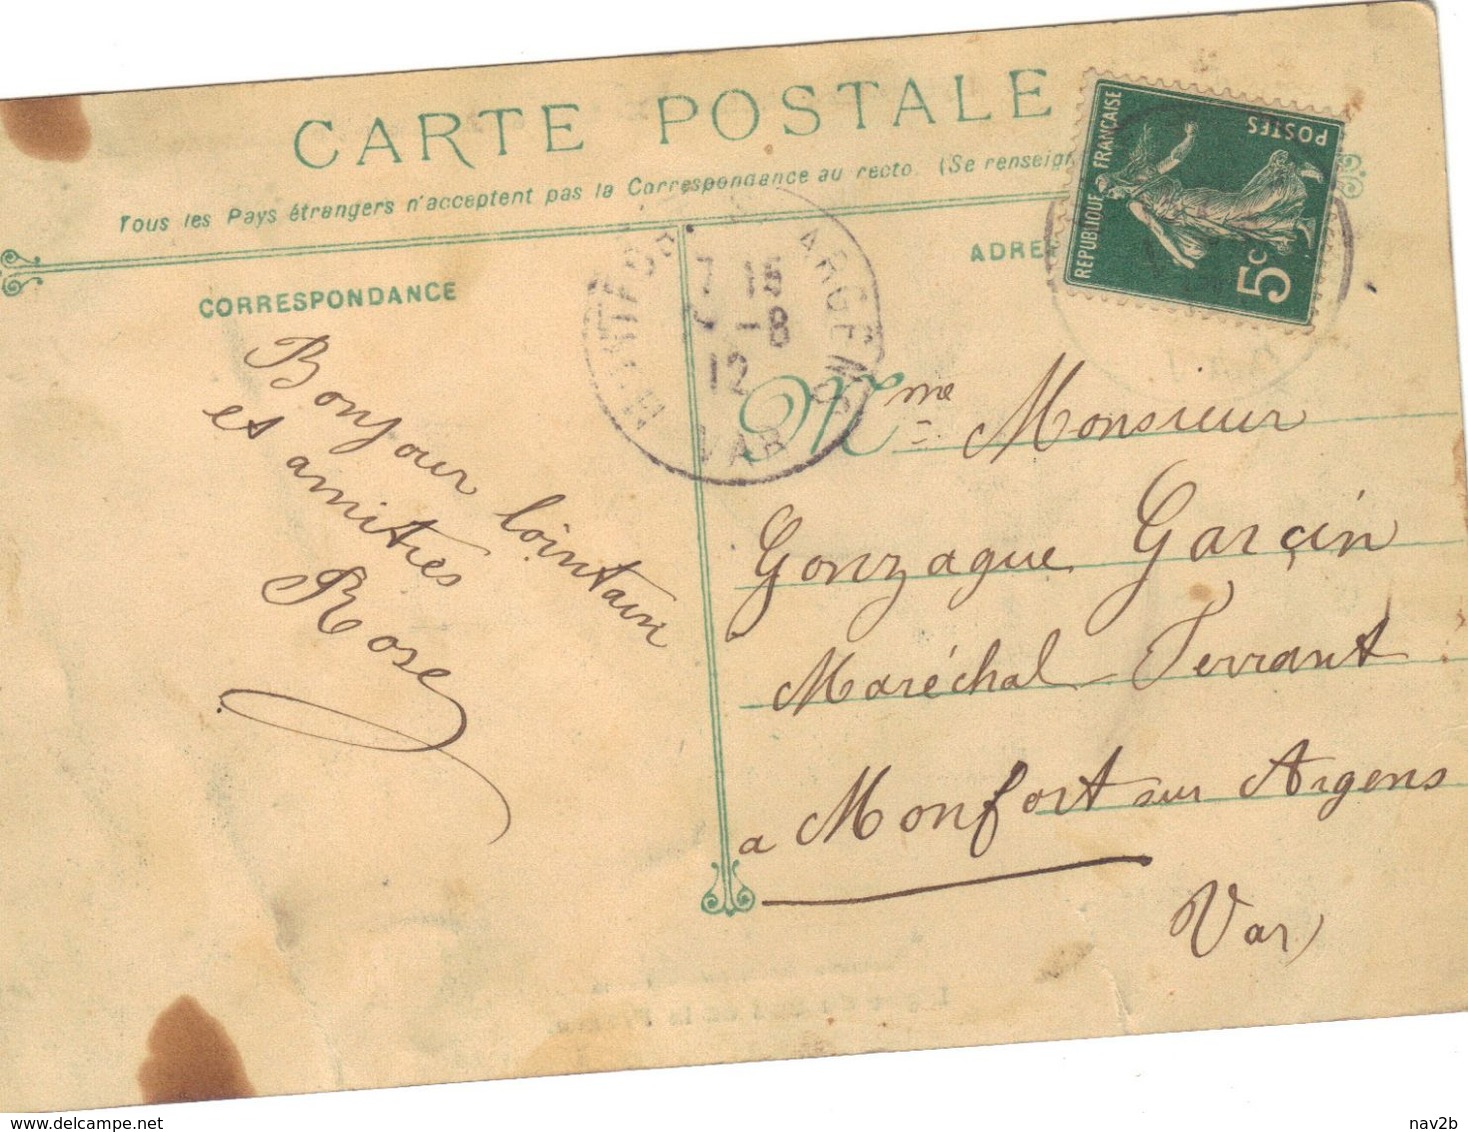 CARTE POSTALE
Tous les Pays étrangers n'acceptent pas la Correspondance au recto. (Se renseign
RÉPUBLIQUE FRANÇAISE
POSTES
5c
CORRESPONDANCE
ADRE
ARGENS
7 15
-8
12
VAR
Bonjour lointain
et amitiés
Rose
M me = Monsieur
Gonzague Garçin
Maréchal Ferrant
a Monfort sur Argens
Var
delcampe.net
nav2b